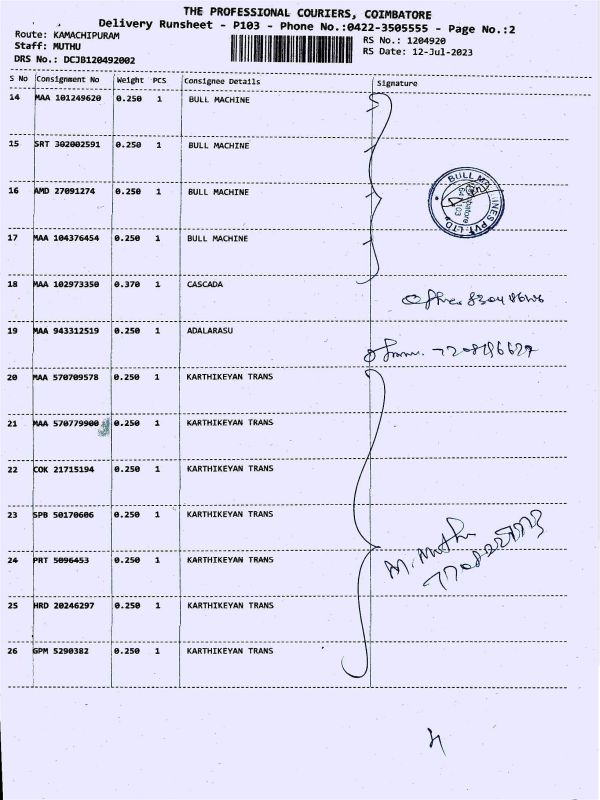 THE PROFESSIONAL COURIERS, COIMBATORE
Delivery Runsheet - P103 - Phone No.:0422-3505555 - Page No.:2
Route: KAMACHIPURAM
RS No.: 1204920
Staff: MUTHU
RS Date: 12-Jul-2023
DRS No.: DCJB120492002
S No Consignment No Weight PCS Consignee Details Signature
14 MAA 101249620 0.250 1 BULL MACHINE
15 SRT 302002591 0.250 1 BULL MACHINE
16 AMD 27091274 0.250 1 BULL MACHINE
BULL MACHINES PVT. LTD.
17 MAA 104376454 0.250 1 BULL MACHINE
18 MAA 102973350 0.370 1 CASCADA
19 MAA 943312519 0.250 1 ADALARASU
20 MAA 570709578 0.250 1 KARTHIKEYAN TRANS
21 MAA 570779900 0.250 1 KARTHIKEYAN TRANS
22 COK 21715194 0.250 1 KARTHIKEYAN TRANS
23 SPB 50170606 0.250 1 KARTHIKEYAN TRANS
24 PRT 5096453 0.250 1 KARTHIKEYAN TRANS
M. Muthu
25 HRD 20246297 0.250 1 KARTHIKEYAN TRANS
26 GPM 5290382 0.250 1 KARTHIKEYAN TRANS